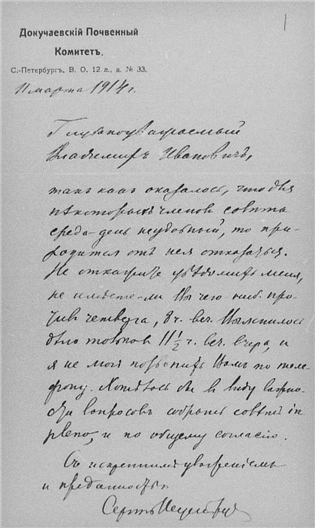 1
Докучаевскій Почвенный
Комитетъ.
С.-Петербургъ, В. О. 12 л., д. № 33.
11 марта 1914 г.
Глубокоуважаемый
Владимиръ Ивановичъ,
такъ какъ оказалось, что для
нѣкоторыхъ членовъ совѣта
среда - день неудобный, то при-
ходится отъ нея отказаться.
Не откажите увѣдомить меня,
не имѣете-ли Вы чего ниб. про-
тивъ четверга, 8 ч. веч. Выяснилось
это только 11½ ч. веч. вчера, и
я не могъ позвонить Вамъ по теле-
фону. Хотѣлось бы въ виду важно-
сти вопросовъ собрать совѣтъ in
pleno, и по общему согласію.
Съ искреннимъ уваженіемъ
и преданностью